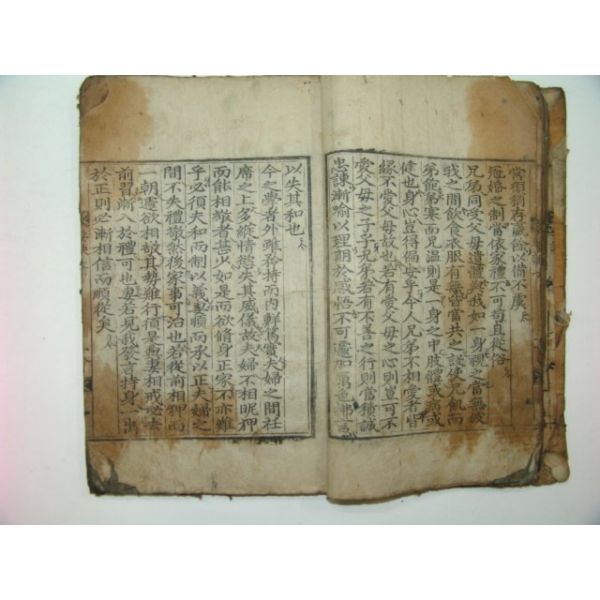 常須稍存贏餘以備不虞
冠婚之制當依家禮不可苟且從俗
兄弟同受父母遺體與我如一身視之當無彼
我之間飮食衣服有無皆當共之設使兄飢而
弟飽弟寒而兄溫則是一身之中肢體或病或
健也身心豈得偏安乎今人兄弟不相愛者皆
緣不愛父母故也若有愛父母之心則豈可不
愛父母之子乎兄弟若有不善之行則當積誠
忠諫漸喩以理期於感悟不可遽加厲色拂言
以失其和也
今之學者外雖矜持而內鮮篤實夫婦之間衽
席之上多縱情慾失其威儀故夫婦不相昵狎
而能相敬者甚少如是而欲脩身正家不亦難
乎必須夫和而制以義妻順而承以正夫婦之
間不失禮敬然後家事可治也若從前相狎而
一朝遽欲相敬其勢難行須是與妻相戒必去
前習漸入於禮可也妻若見我發言持身一出
於正則必漸相信而順從矣